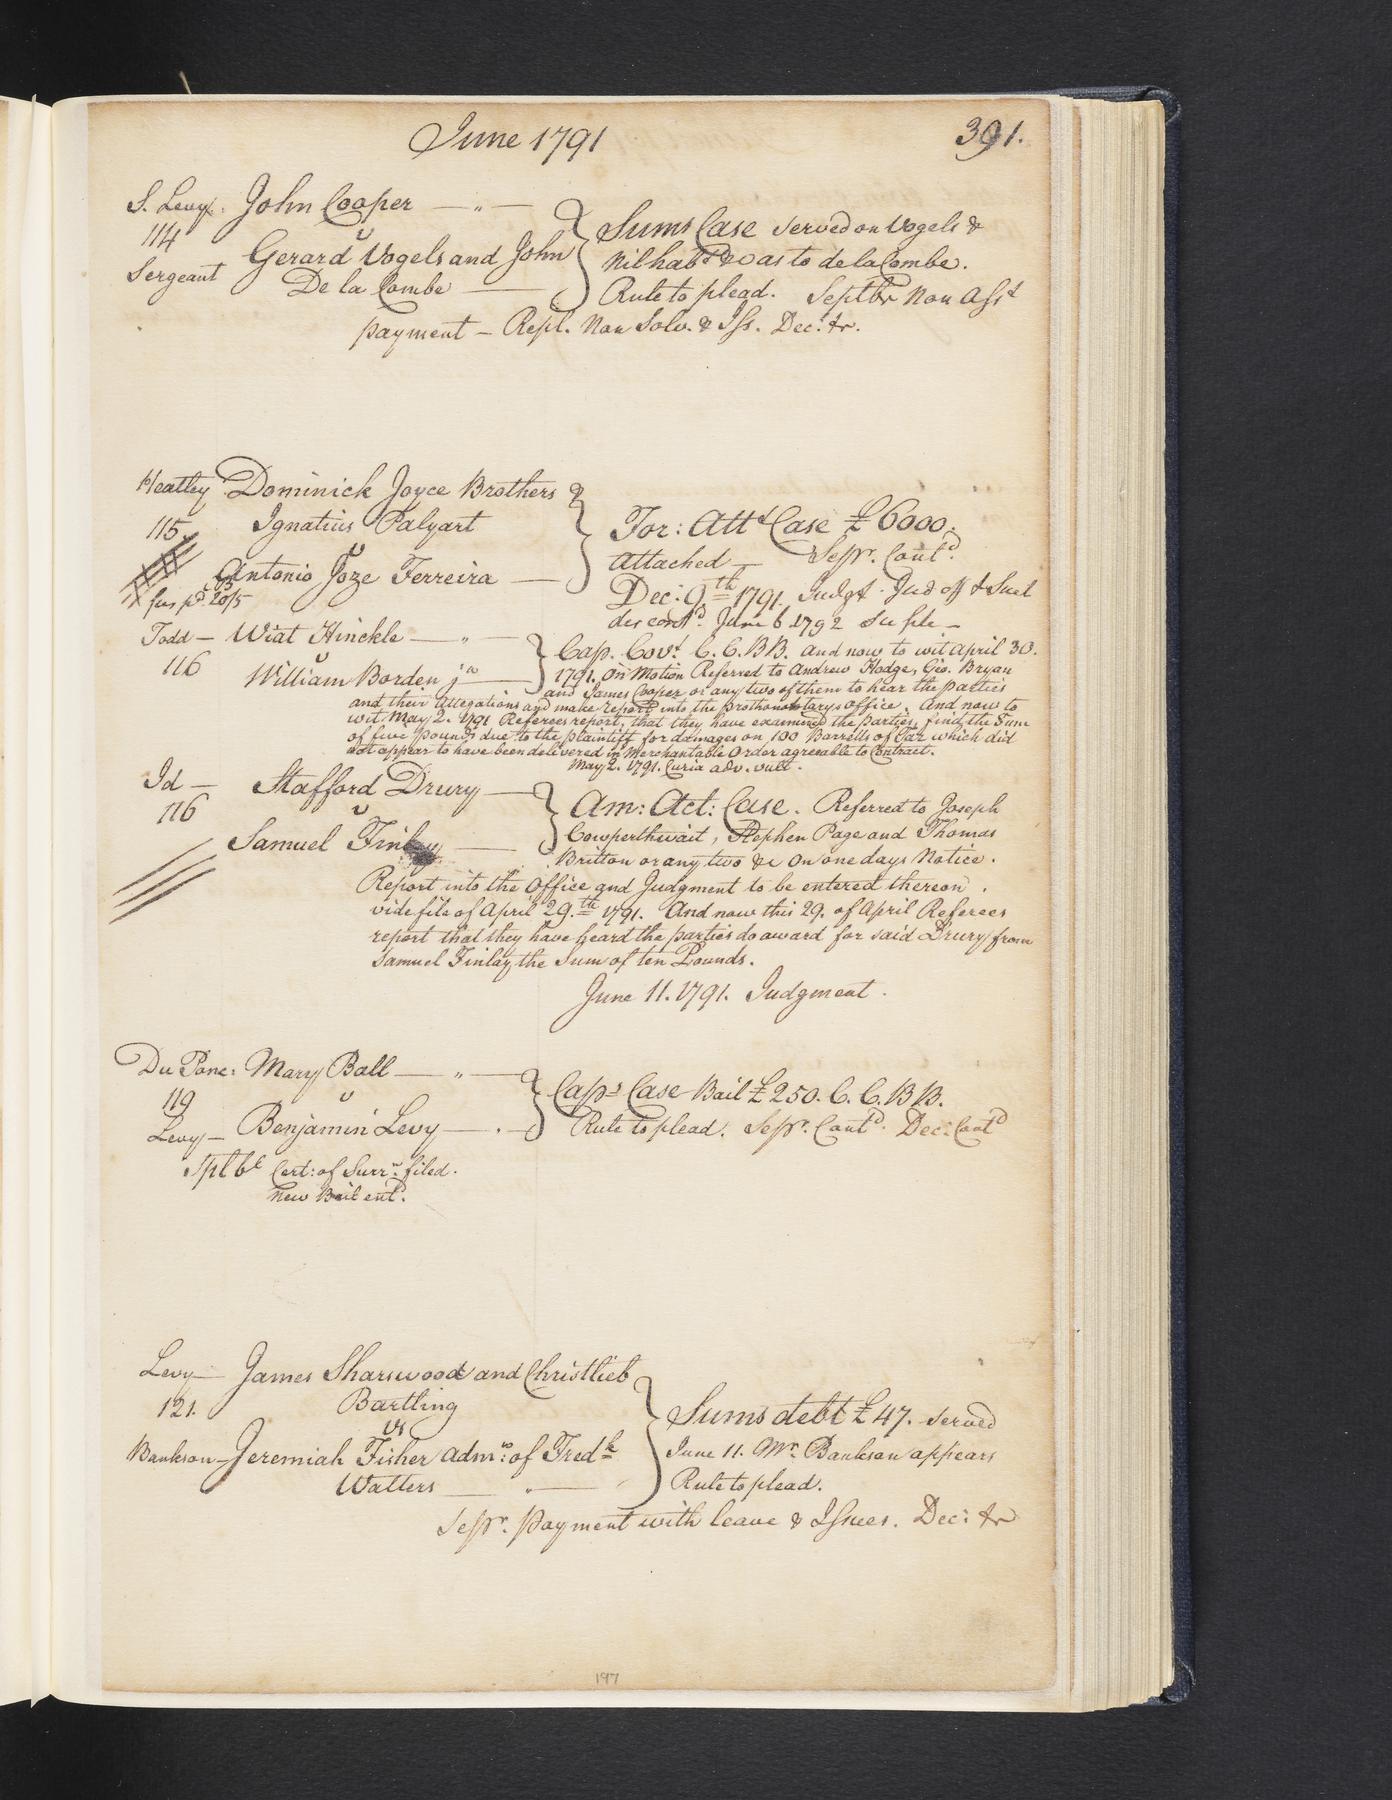 June 1791
391.
S. Levy. John Cooper — " —
114 v
Sergeant Gerard Vogels and John
De la Combe —
Sums Case Served on Vogels &
Nil habt &c as to de la Combe.
Rule to plead. Septbr Non Asst
payment — Repl. Non Solv. & Iss. Dec: &r.
Heatley Dominick Joyce Brothers &
115 Ignatius Palyart
v
Antonio Joze Ferreira —
For: Attt Case £6000.
Attached — Sepr. Contd.
Dec: 9th 1791. Judgt.
June 6 1792
Todd — Wiat Hinckle — " —
116 v
William Borden jnr —
Cap. Covt. C. C. B B. and now to wit April 30.
1791. On Motion Referred to Andrew Hodge, Geo. Bryan
and James Cooper or any two of them to hear the parties
and their Allegations and make report into the prothonotarys office. And now to
wit May 2. 1791 Referees report, that they have examined the parties, find the Sum
of five pounds due to the plaintiff for damages on 100 Barrells of Tar which did
not appear to have been delivered in Merchantable Order agreeable to Contract.
May 2. 1791. Curia adv. vult.
Id — Stafford Drury —
116 v
Samuel Finlay —
Am: Act: Case. Referred to Joseph
Cowperthwait, Stephen Page and Thomas
Britton or any two &c On one days Notice.
Report into the Office and Judgment to be entered thereon.
vide file of April 29.th 1791. And now this 29. of April Referees
report that they have heard the parties do award for said Drury from
Samuel Finlay the Sum of ten Pounds.
June 11. 1791. Judgment.
Du Ponc: Mary Ball — " —
119 v
Levy — Benjamin Levy — . —
Caps Case Bail £250. C. C. B B.
Rule to plead. Sepr. Contd. Dec: Contd
Spl bl Cert: of Surrr. filed.
New Bail entd.
Levy — James Sharswood and Christlieb
121. Bartling
vs
Bankson — Jeremiah Fisher admr: of Fredk
Watters — " —
Sums debt £47. Served
June 11. Mr. Bankson appears
Rule to plead.
Sepr. payment with leave & Issues. Dec: &r
197